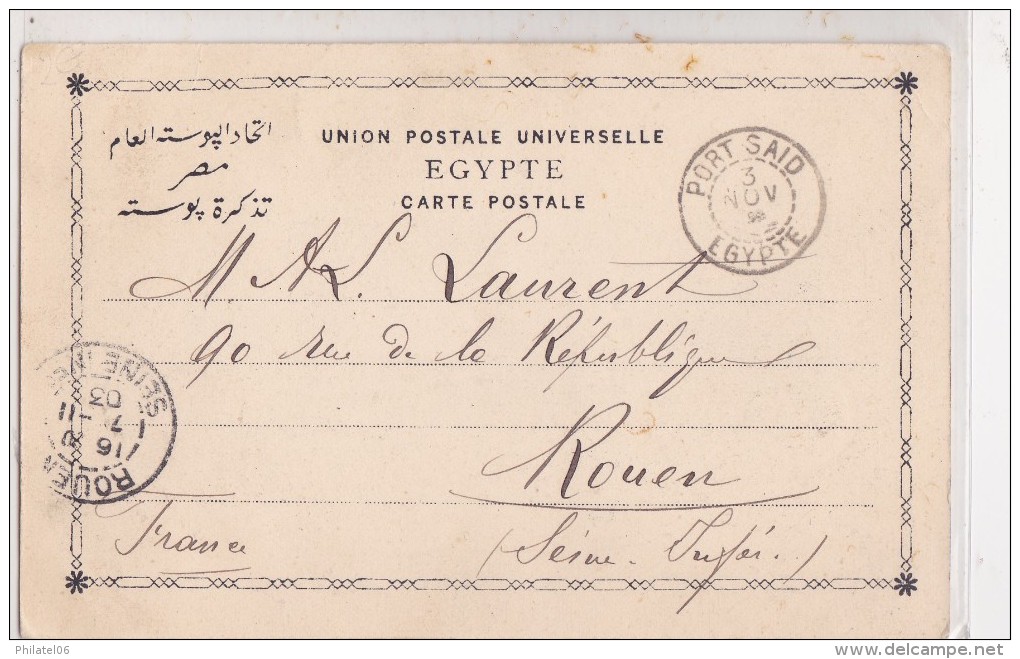 اتحاد البوسته العام
مصر
تذكرة بوسته
UNION POSTALE UNIVERSELLE
EGYPTE
CARTE POSTALE
PORT SAID
3
NOV
EGYPTE
M. A.L. Laurent
90 rue de la République
Rouen
(Seine. Infér.)
France
ROUEN
16
7 - 11
03
SEINE INF
Philatel06
www.delcampe.net